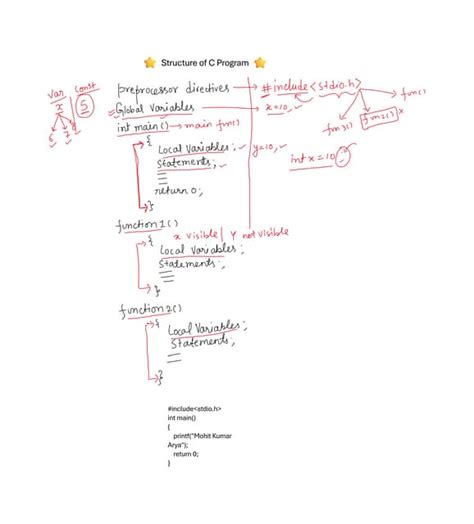 Structure of C Program
Var const
x 5
6 7 9
preprocessor directives → #include<stdio.h>
Global Variables → x=10,
fun()
fun1() fun2() x
int main() → main fun()
{
Local Variables; y=10,
int x=10;
Statements;
return 0;
}
function1()
x visible/ y not visible
{
Local Variables;
Statements;
}
function2()
{
Local Variables;
Statements;
}
#include<stdio.h>
int main()
{
printf("Mohit Kumar
Arya");
return 0;
}